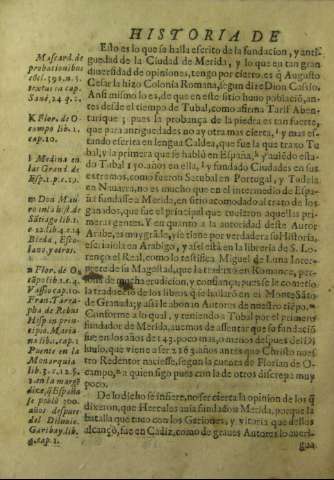 HISTORIA DE
Esto es lo que se halla escrito de la fundacion, y anti-
guedad de la Ciudad de Merida, y lo que en tan gran
diversidad de opiniones, tengo por cierto, es q̃ Augusto
Cesar la hizo Colonia Romana, segun dize Dion Cassio.
Ansi mismo lo es, de que en este sitio huuo poblaciõ, an-
tes desde el tiempo de Tubal, como afirma Tarif Aben-
tarique; pues la probança de la piedra es tan fuerte,
que para antiguedades no ay otra mas cierta, k y mas es-
tando escrita en lengua Caldea, que fue la que traxo Tu
bal, y la primera que se habló en España, l y auiẽdo esta-
do Tubal 150 años en ella, y fundado Ciudades en sus
estremos, como fueron Setubal en Portugal, y Tudela
en Nauarra, no es mucho que en el intermedio de Espa-
ña fundasse a Merida, en sitio acomodado al trato de los
ganados, que fue el principal que tuuieron aquellas pri-
meras gentes. Y en quanto a la autoridad deste Autor
Arabe, es muy grãde, y se tiene por verdadera su Historia,
escriuiola en Arabigo, y assi està en la libreria de S. Lo-
renço el Real, como lo testifica Miguel de Luna Inter-
prete de su Magestad, que la traduxo en Romance, per-
sona de mucha erudicion, y confiança, pues se le cometio
la traduccion de los libros q̃ se hallarõ en el Monte Sãto
de Granada; y assi le abonan Autores de nuestro tiẽpo.
Conforme a lo qual, y teniendo a Tubal por el primer
fundador de Merida, auemos de assentar que su fundaciõ
fue en los años de 143. poco mas, o menos despues del Di
luuio, que
redemtor naciesse, segun la cuenta de Florian de O-
campo, a quien sigo pues con la de otros discrepa muy
poco.
De lo dicho se infiere, no ser cierta la opinion de los q̃
dixeron, que Hercules auia fundado a Merida, porque la
batalla que tuuo con los Geriones, y vitoria que dellos
alcançò, fue en Cadiz, como de graues Autores lo aueri-
gua
Mascard. de
probationibus
cap.10.
k Flor. de O-
campo lib.1.
cap.10.
l Medina en
las Grand. de
Esp.1.p.c.29.
m Don Mau
Sãtiago lib.1.
Bleda, Esco-
lano, y otros.
n Flor. de O
Puente en la
Monarquia
año, q̃ España
se poblò 200.
años despues
del Diluuio.
Garibay. lib.
4. cap.1.